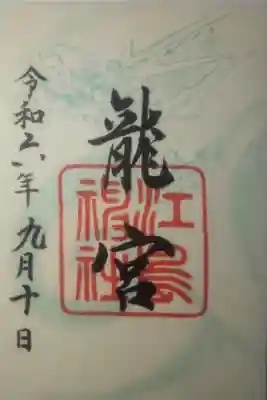 龍宮
江島
神社
令和 年九月十日